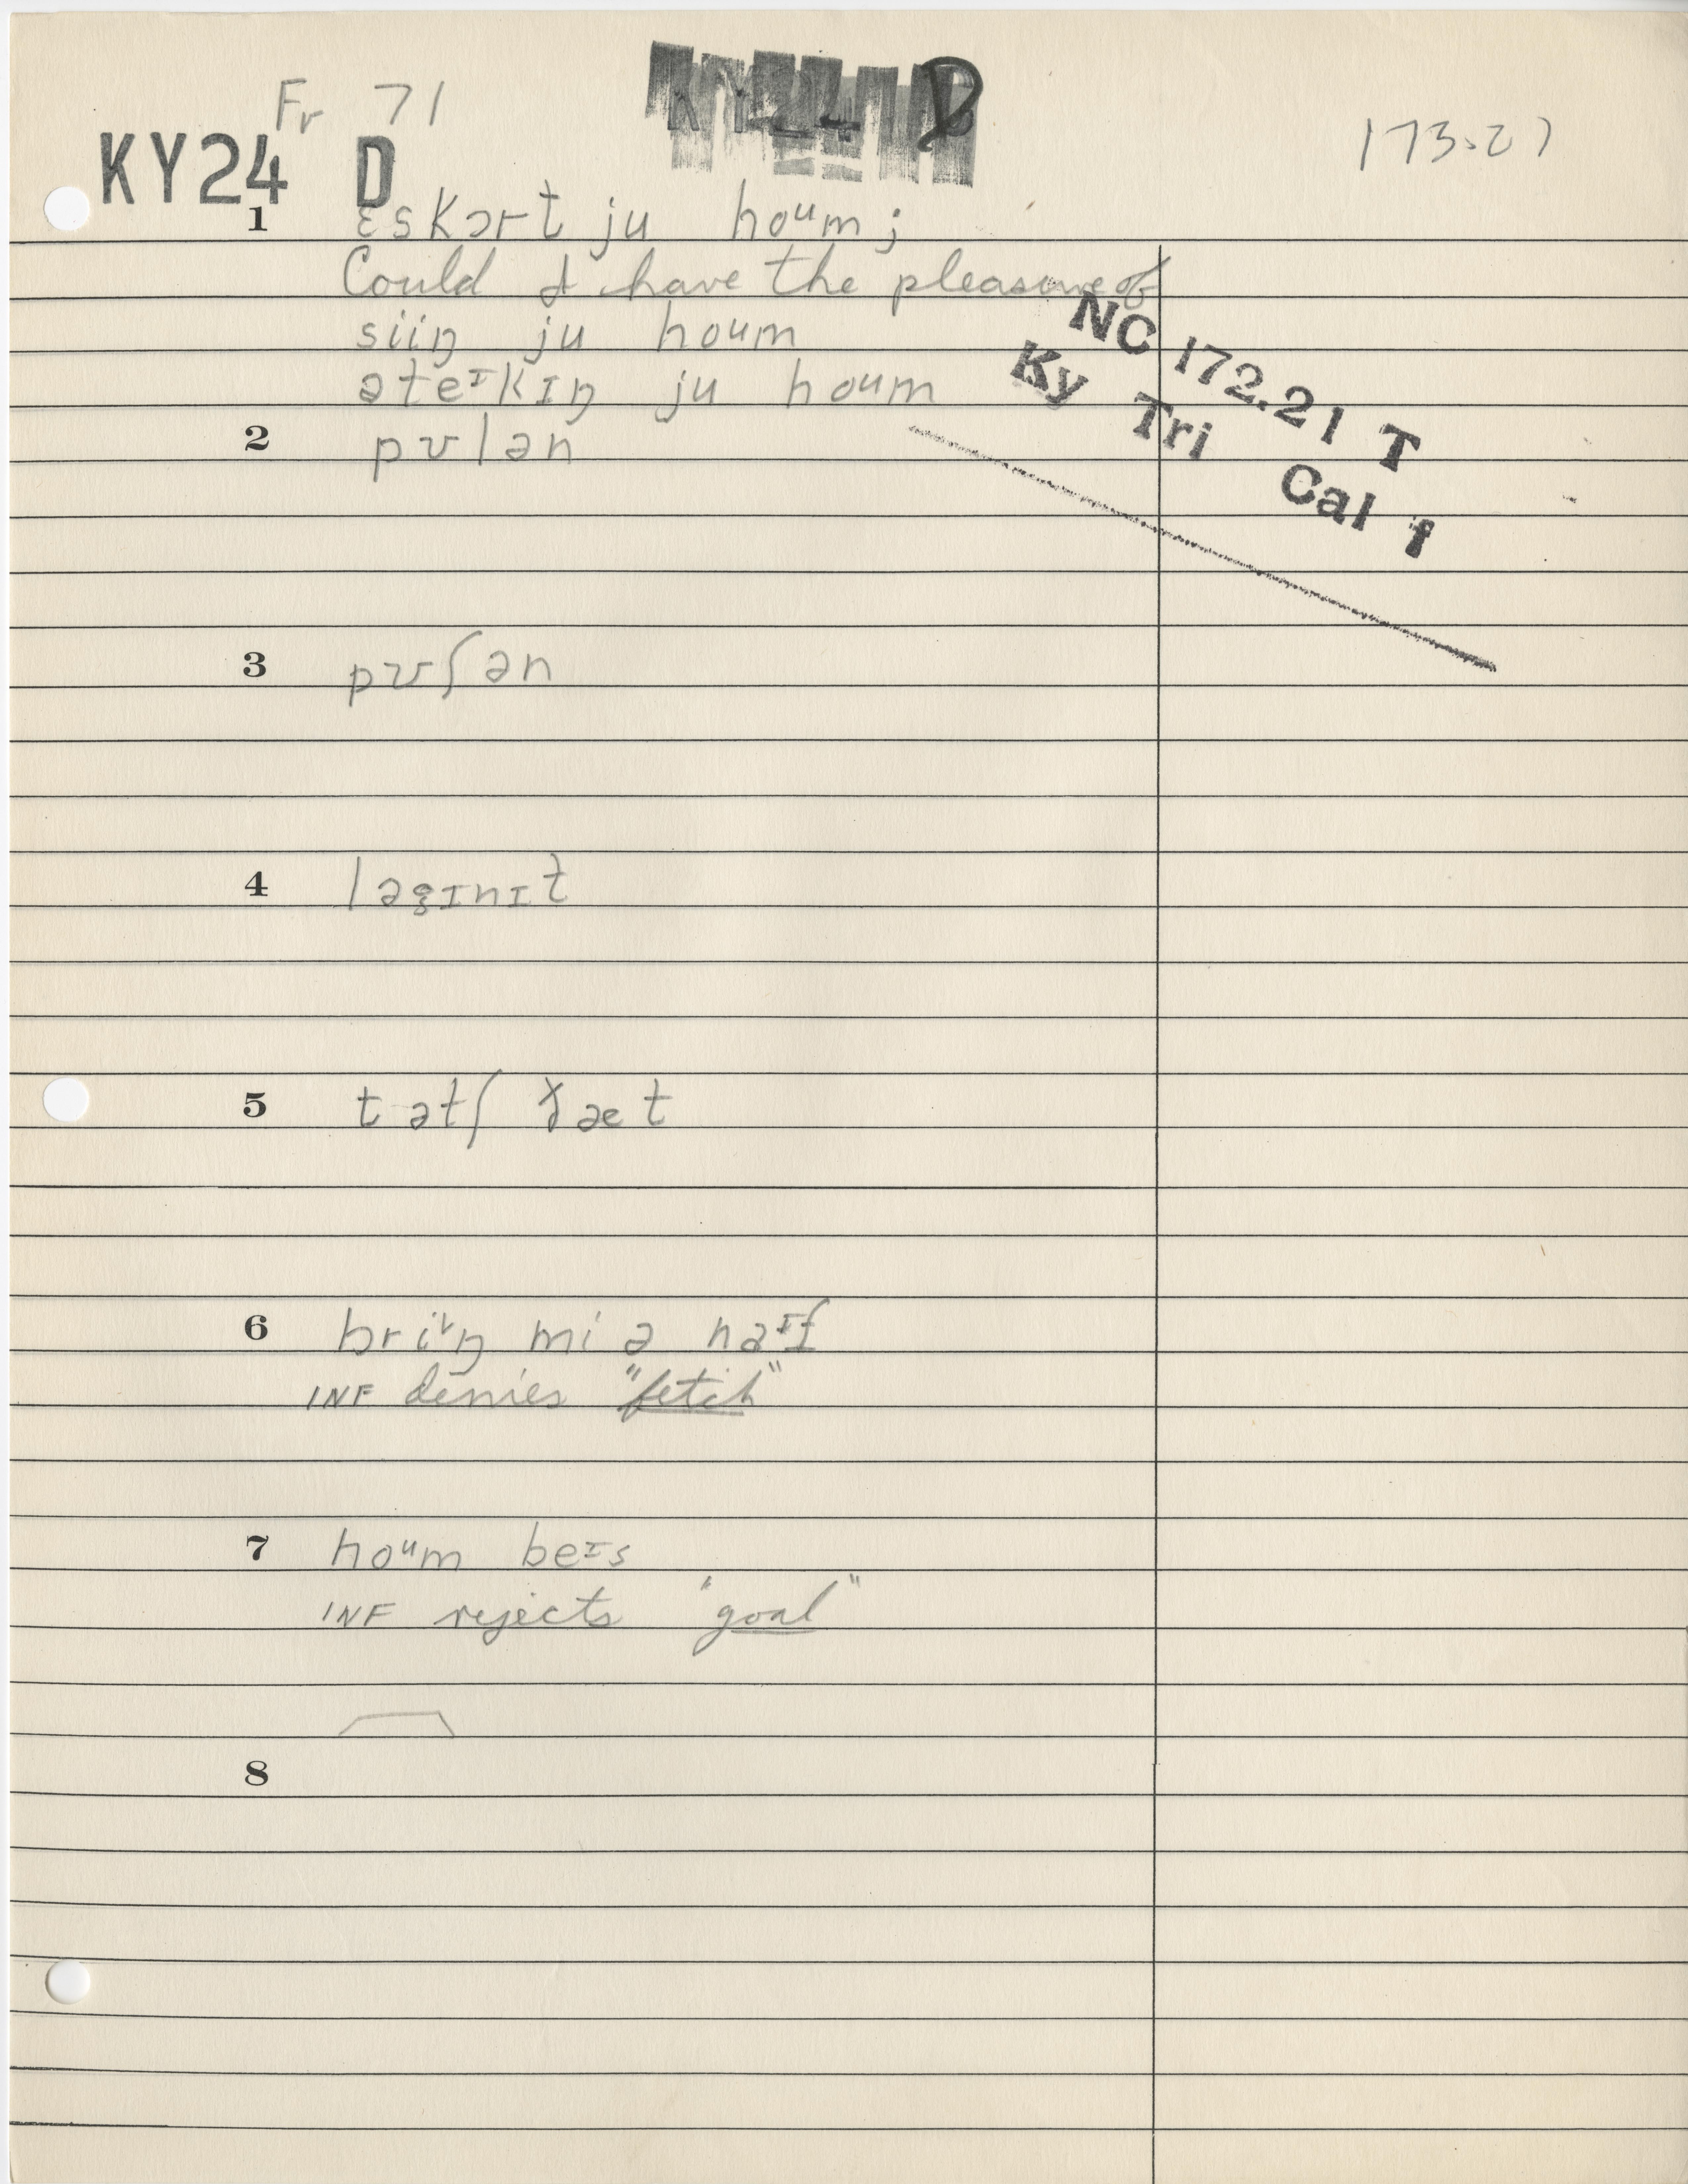 Fr 71
KY24 D
173.27
1 ɛskɔrt ju hoᵘm;
Could I have the pleasure of
siiŋ ju hoᵘm
əteᶦkɪŋ ju hoᵘm
NC 172.21 T
Ky Tri Cal f
2 pʊlən
3 pʊʃən
4 lægɪnɪt
5 tətʃ ðæt
6 briᶦŋ mi ə naᶦf
INF denies "fetch"
7 hoᵘm beᶦs
INF rejects "goal"
8